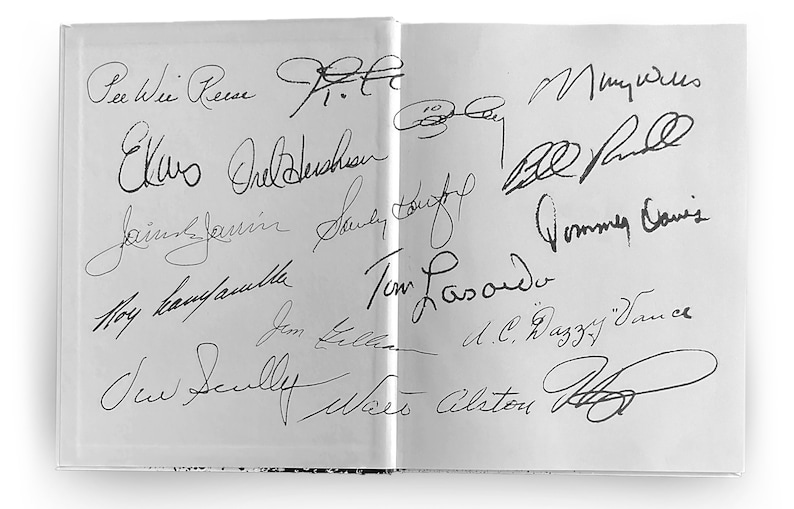 Pee Wee Reese
Maury Wills
10
E Karros
Orel Hershiser
Bill Russell
Sandy Koufax
Tommy Davis
Roy Campanella
Tom Lasorda
Jim Gilliam
A.C. "Dazzy" Vance
Vin Scully
Walt Alston